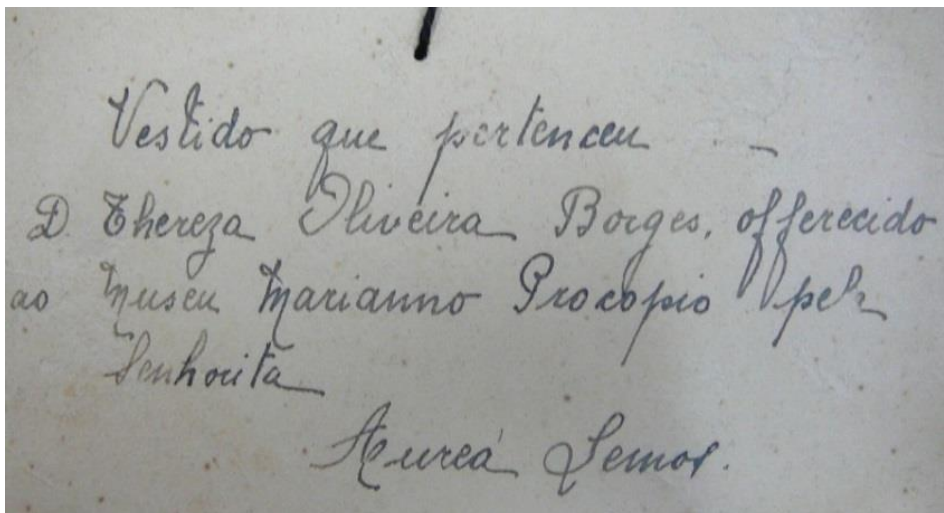 Vestido que pertenceu —
D. Thereza Oliveira Borges, offerecido
ao Museu Marianno Procopio pela
Senhorita
Aurea Lemos.